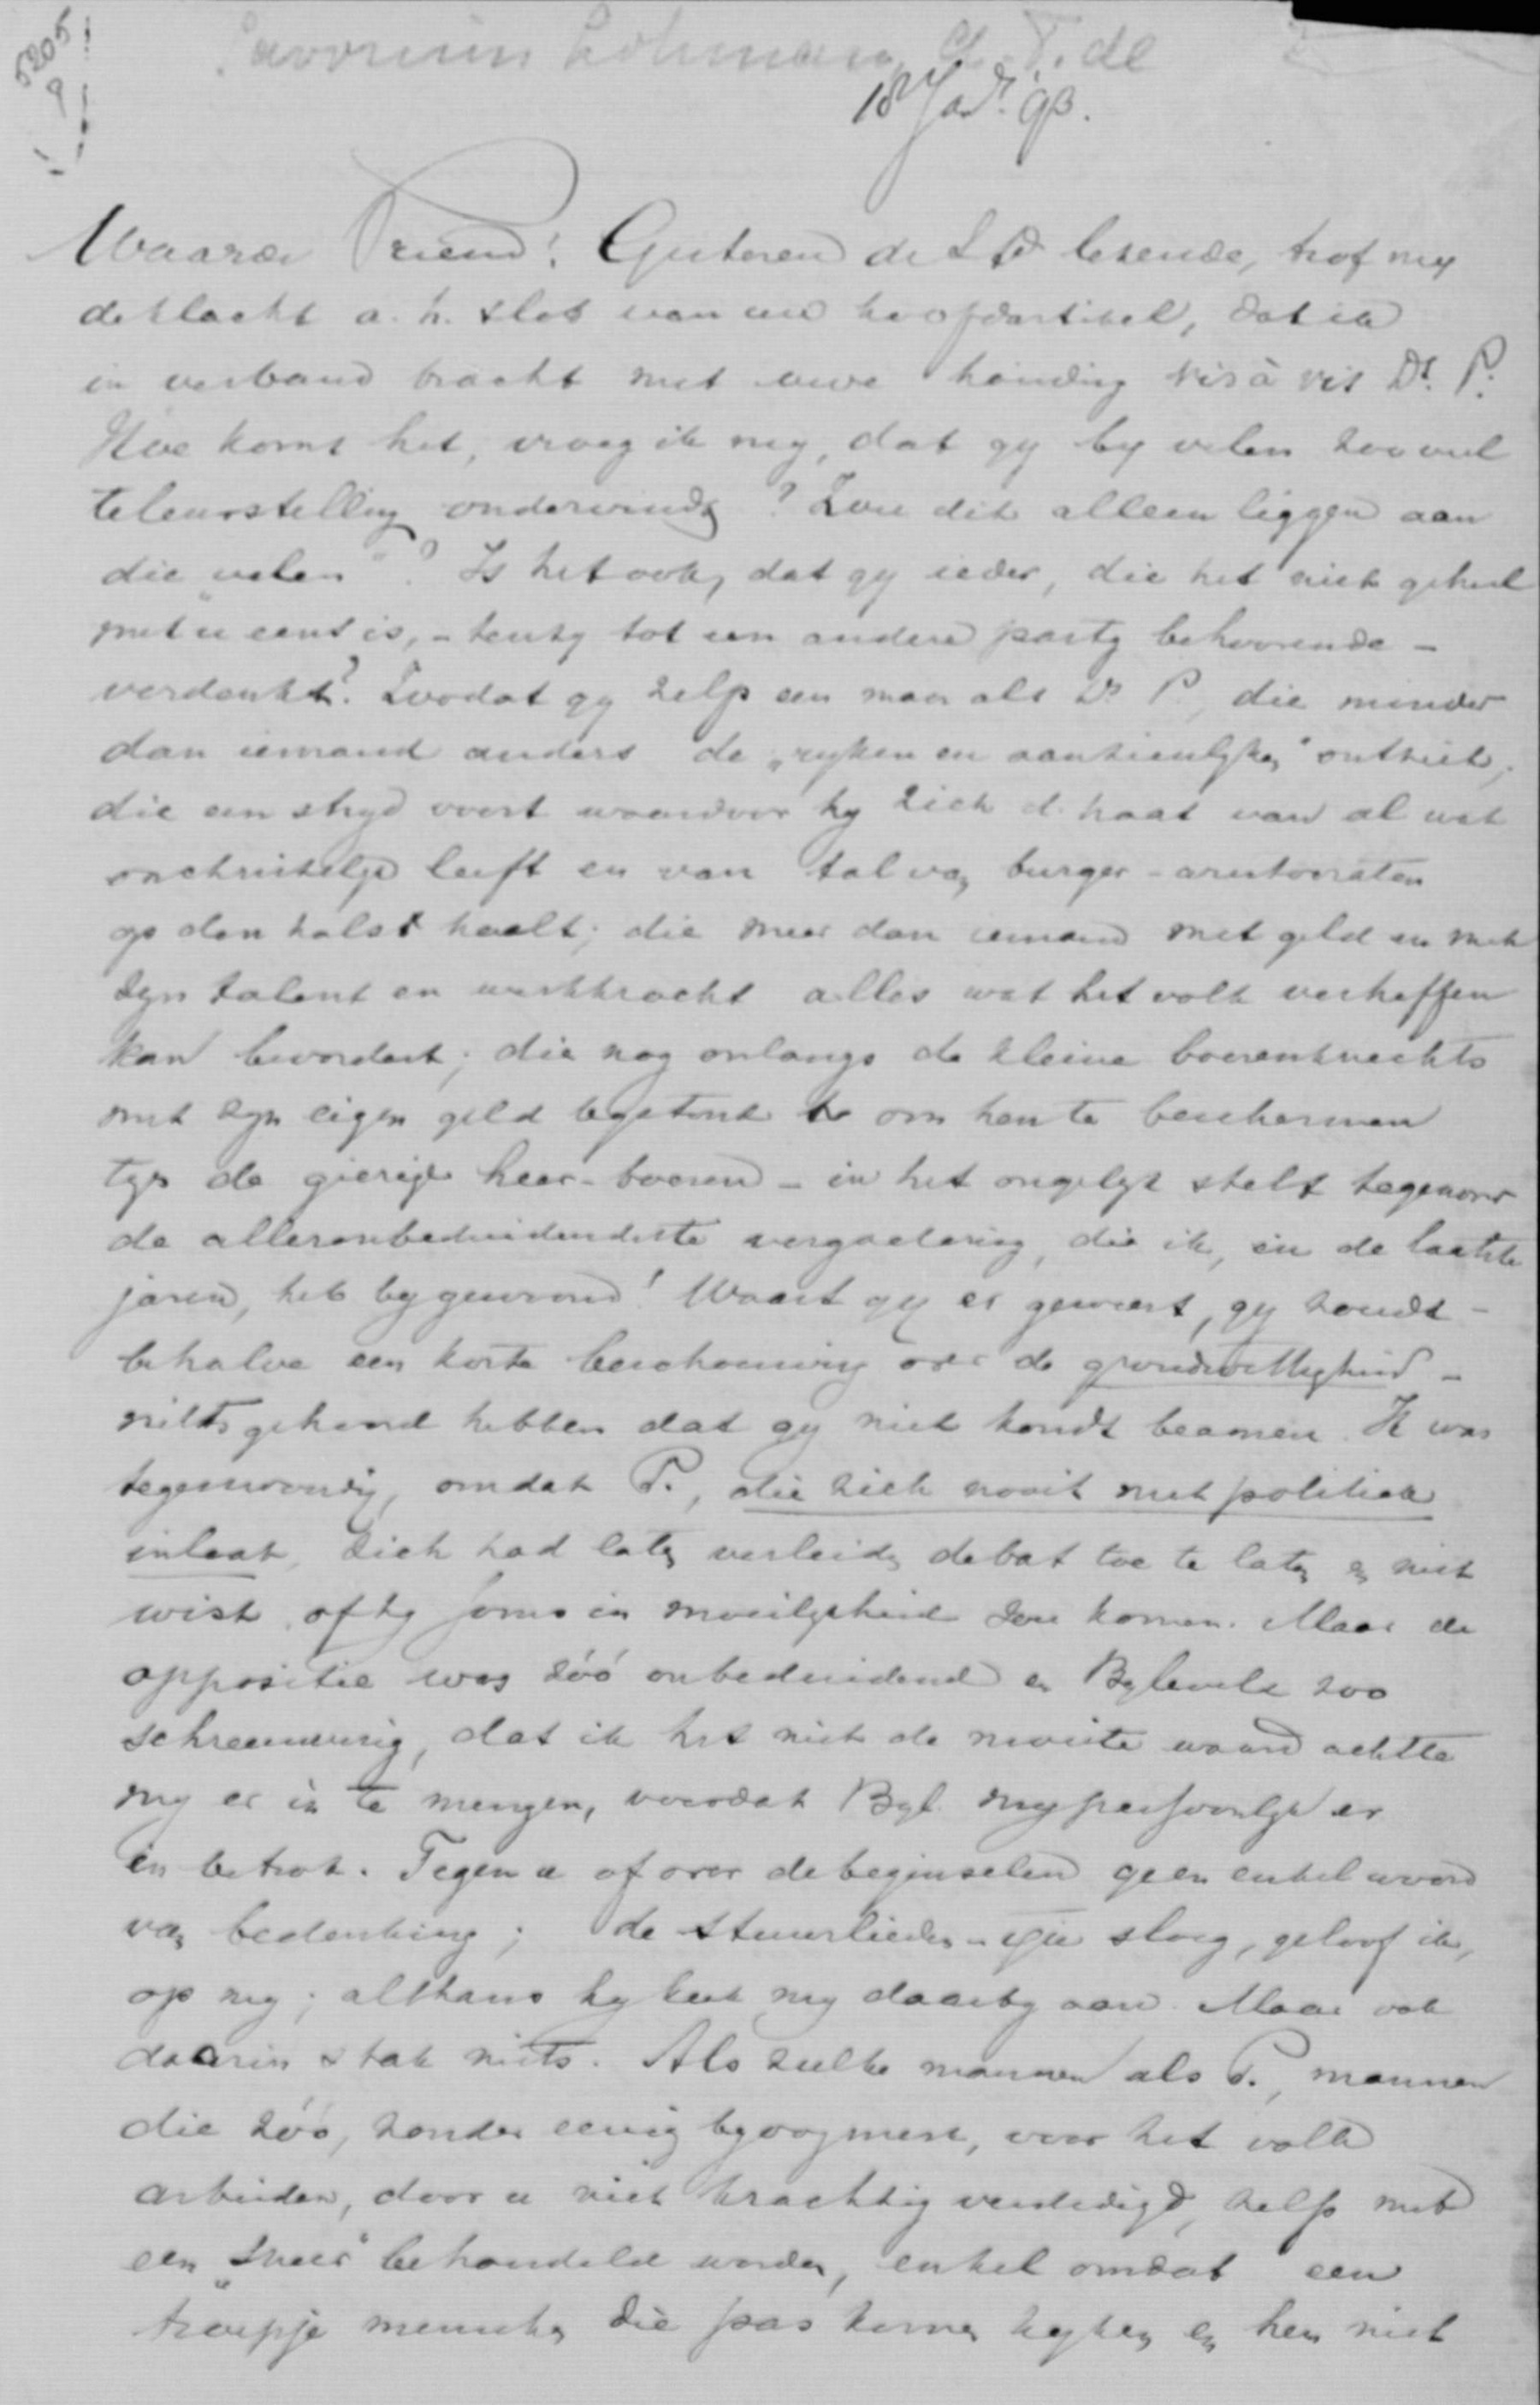 5205
9
Savornin Lohman, A. F. de
18 Jan. 93.
Waarde Vriend! Gisteren de St. lezende, trof my
de klacht a. h. slot van uw hoofdartikel, dat ik
in verband bracht met uwe houding vis à vis Ds. P.
Hoe komt het, vroeg ik my, dat gy by velen zooveel
teleurstelling ondervindt? Zou dit alleen liggen aan
die „velen"? Is het ook, dat gy ieder, die het niet geheel
met u eens is, - tenzy tot een andere party behoorende -
verdenkt? Zoodat gy zelfs een man als Ds P., die minder
dan iemand anders de „ryken en aanzienlyken" ontziet,
die een stryd voert waardoor hy zich d. haat van al wat
onchristelyk leeft en van tal van burger-aristocraten
op den hals haalt; die meer dan iemand met geld en met
zyn talent en werkkracht alles wat het volk verheffen
kan bevordert; die nog onlangs de kleine boerenknechts
met zyn eigen geld bystond om hen te beschermen
tgn de gierige heer-boeren - in het ongelyk stelt tegenover
de alleronbeduidendste vergadering, die ik, in de laatste
jaren, heb bygewoond! Waart gy er geweest, gy zoudt -
behalve een korte beschouwing over de grondwettigheid -
niets gehoord hebben dat gy niet kondt beamen. Ik was
tegenwoordig, omdat P., die zich nooit met politiek
inlaat, zich had laten verleiden debat toe te laten en niet
wist of hy soms in moeilykheid zou komen. Maar de
oppositie was zóó onbeduidend en Byleveld zoo
schreeuwerig, dat ik het niet de moeite waard achtte
my er in te mengen, voordat Byl. my persoonlyk er
in betrok. Tegen u of over de beginselen geen enkel woord
van bedenking; de stuurlieden- sloeg, geloof ik,
op my; althans hy keek my daarby aan. Maar ook
daarin stak niets. Als zulke mannen als P., mannen
die zóó, zonder eenig byoogmerk, voor het volk
arbeiden, door u niet krachtig verdedigd, zelfs met
een „sneer" behandeld worden, enkel omdat een
troepje menschen die pas komen kyken en hen niet